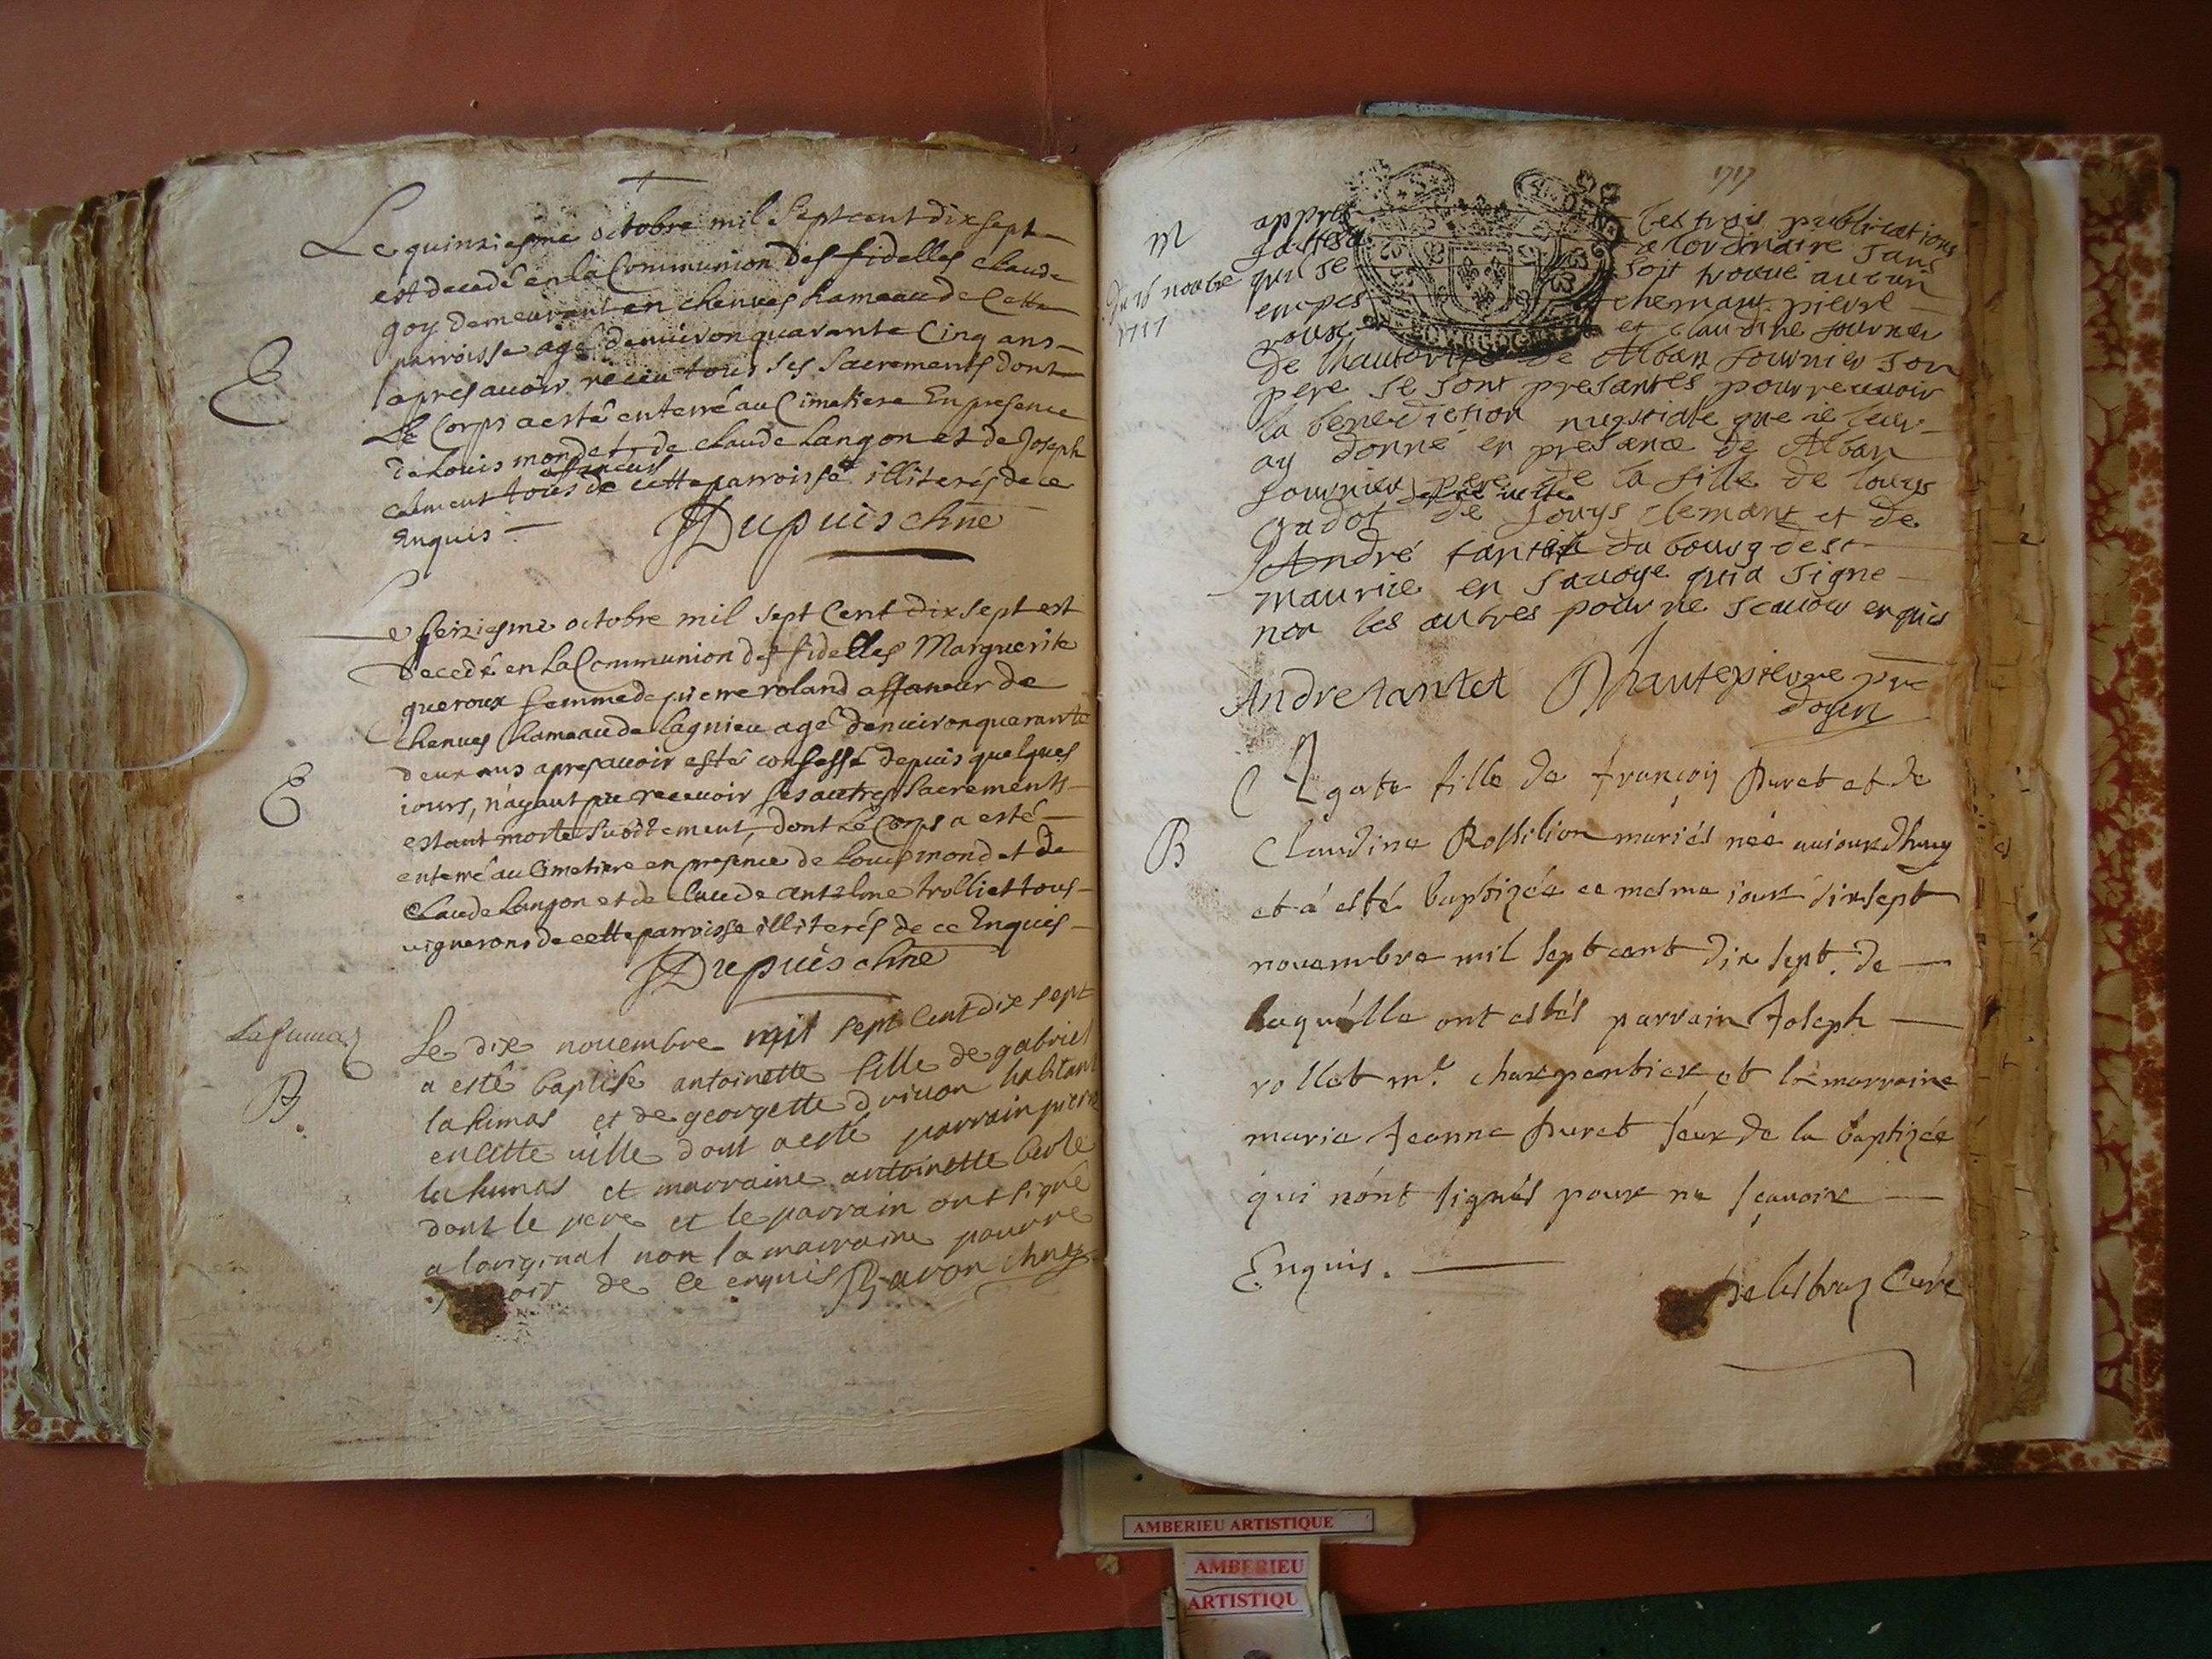 Le quinziesme octobre mil Sept cent dix sept
est decedé en la Communion des fidelles Claude
goy demeurant en chenves hameau de Cette
E
parroisse agé denuiron quarante Cinq ans
apres auoir receu tous ses Sacrements dont
Le Corps a esté enterré au Cimetiere En presence
de Louis mondet, de claude Langon et de Joseph
affaneurs
calment tous de cette parroisse illiterés de ce
Enquis
Dupuis chne
Le seiziesme octobre mil sept Cent dix sept est
decedé en la Communion des fidelles Marguerite
queroux femme de pierre roland affaneur de
chenves hameau de Lagnieu agé denuiron quarante
deux ans apres auoir esté confessé depuis quelques
E
iours, n'ayant pu receuoir les autres Sacrements
estant morte subitement, dont Le Corps a esté
enterré au Cimetiere en presence de Louis mond et de
Claude Langon et de claude antelme trolliet tous
vignerons de cette parroisse illiterés de ce Enquis
Dupuis chne
Lafumas
B
Le dix nouembre mil sept cent dix sept
a esté baptisé antoinette fille de gabriel
lafumas et de georgette driuon habitant
en cette uille dont a esté parrain pierre
lafumas et marraine antoinette
dont le pere et le parrain ont signé
a loriginal non la marraine pour ne
de ce enquis Gavon chne
1717
M
Du 16 novbre
1717
appres les trois publications
faites a lordinaire sans
quil se soit trouue aucun
empeschemant pierre
roux et claudine fournier
de lhautorité de Alban fournier son
pere se sont presantés pour receuoir
la benediction nuptiale que ie leur
ay donné en presance de Alban
fournier pere de la fille de louys
gadot de louys clemant et de
André tantet du bourg de st
maurice en sauoye qui a signe
non les autres pour ne scauoir enquis
Andre tantet Dhautepierre pre
doyen
B
Agate fille de françois Puret et de
Claudine Rossilion mariés née auiourdhuy
et á esté baptizée ce mesme iour dixsept
nouembre mil sept cent dix sept. de
laquélle ont estés parrain Joseph
rollet mr. charpentier et la marraine
marie Jeanne Puret seur de la baptizée
qui n'ont signés pour ne sçauoir
Enquis.
Curé
AMBERIEU ARTISTIQUE
AMBERIEU
ARTISTIQU